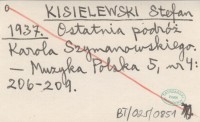 KISIELEWSKI Stefan
1937. Ostatnia podróż
Karola Szymanowskiego.
— Muzyka Polska 5, nr 4:
206-209.
BJ/025/0051